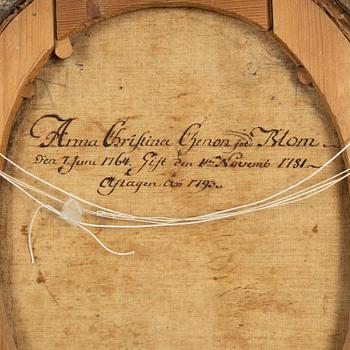 Anna Christina Chenon föd Blom
den 7 Juni 1764. Gift den 1ma Novemb 1781.
Aftagen År 1793.